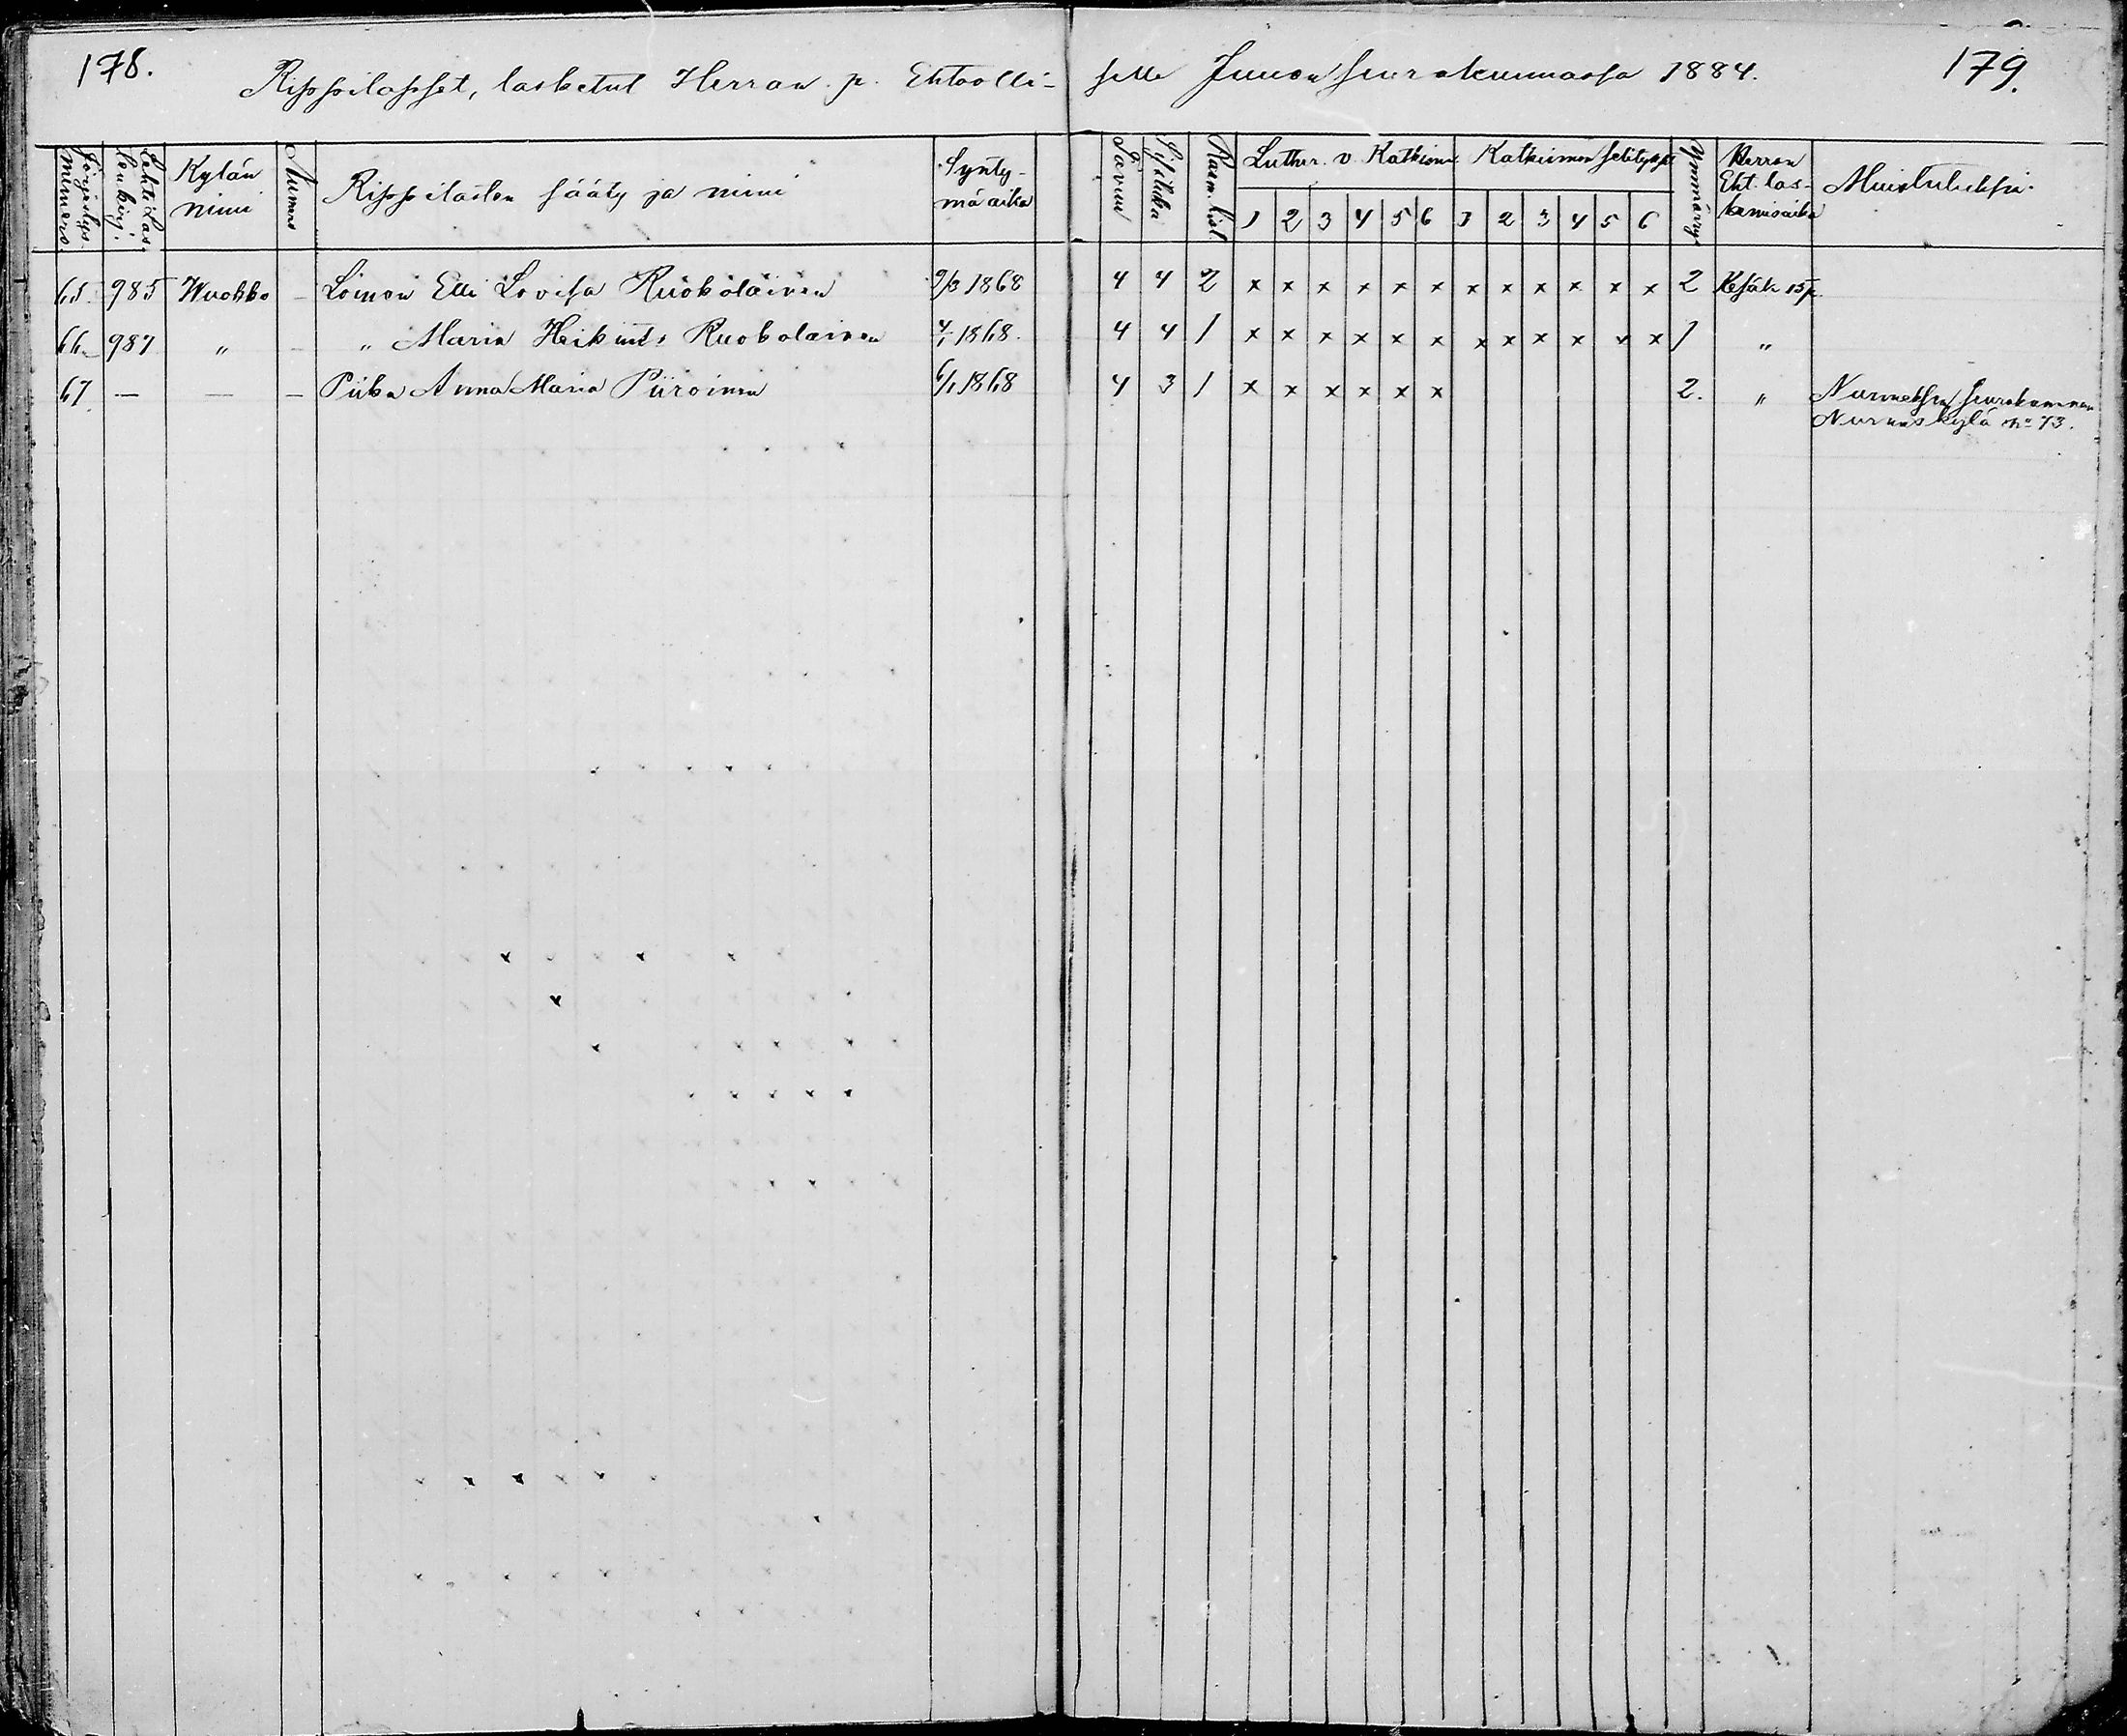 178.
Rippilapset, lasketut Herran p. Ehtoolli-
selle Juuan seurakunnassa 1884.
179.
Järjestys numero.
Lehti Lastenkirj.
Kylän nimi
Numero
Rippilasten sääty ja nimi
Synty-
mä aika
Luther. v. Katkism.
1 2 3 4 5 6
Katkismon selityspi
1 2 3 4 5 6
Ymmärrys
Herran
Eht. las-
kemisaika
Muistutuksia.
65. 985 Wuokko – Loinen Elli Lovisa Ruokolainen 9/3 1868 4 4 2 x x x x x x x x x x x x 2 Kesäk 15 p.
66. 987 " – " Maria Heikint. Ruokolainen 4/1 1868. 4 4 1 x x x x x x x x x x x x 1 "
67. — — – Piika Anna Maria Piiroinen 6/1 1868 4 3 1 x x x x x x 2. " Nurmeksen seurakunnan
Nurmeskylä No 73.